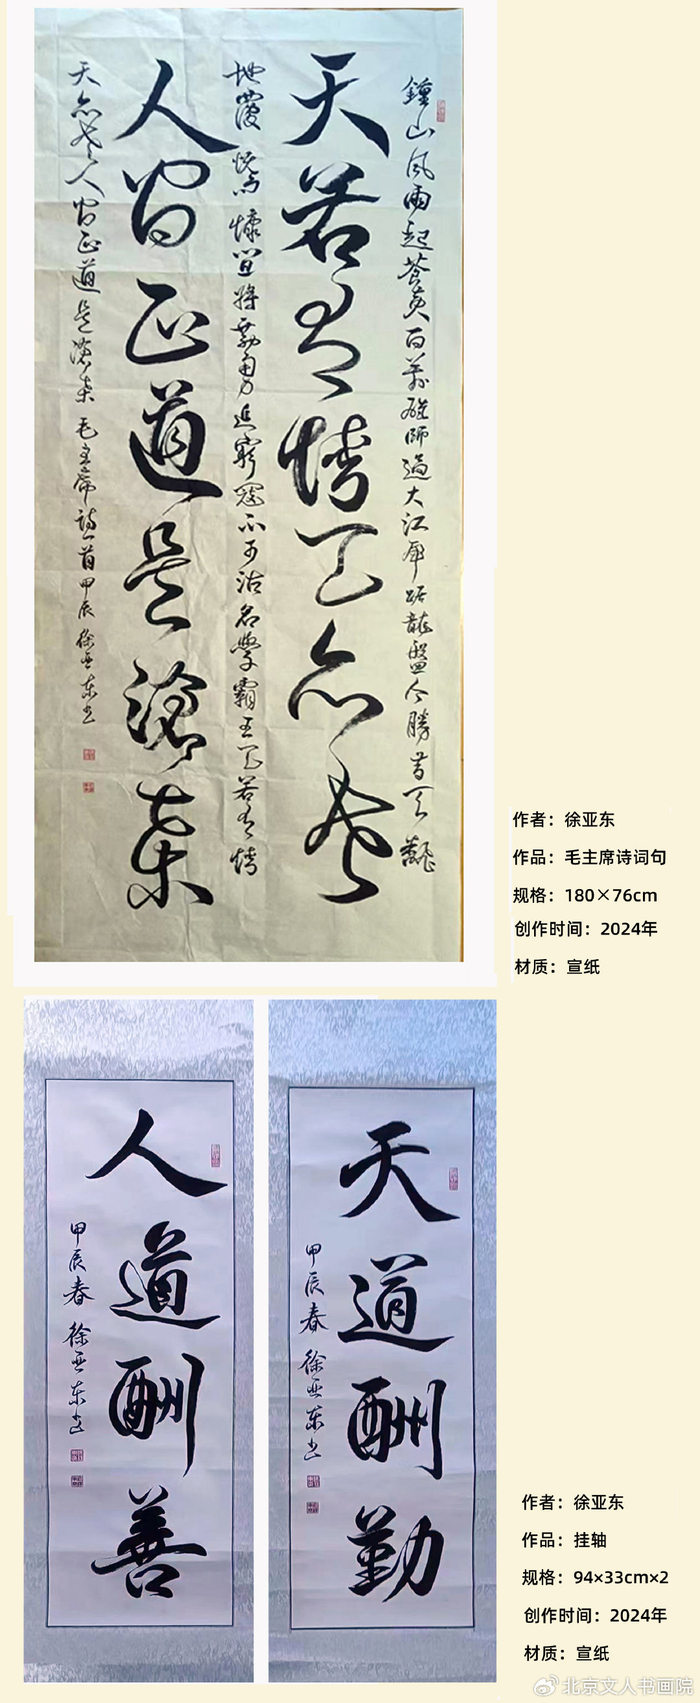 鍾山風雨起蒼黃百萬雄師過大江虎踞龍盤今勝昔天翻
天若有情天亦老
地覆慨而慷宜將剩勇追窮寇不可沽名學霸王天若有情
人间正道是滄桑
天亦老人间正道是滄桑 毛主席诗一首 甲辰 徐亚东书
作者：徐亚东
作品：毛主席诗词句
规格：180×76cm
创作时间：2024年
材质：宣纸
天道酬勤
甲辰春 徐亚东书
人道酬善
甲辰春 徐亚东书
作者：徐亚东
作品：挂轴
规格：94×33cm×2
创作时间：2024年
材质：宣纸
@北京文人书画院